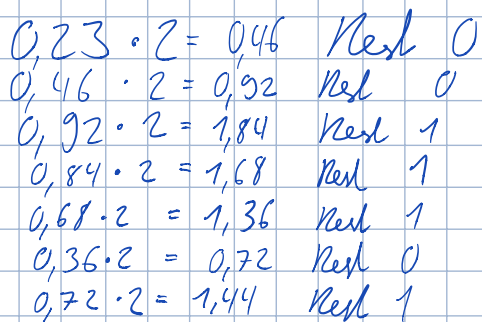 0,23 · 2 = 0,46 Rest 0
0,46 · 2 = 0,92 Rest 0
0,92 · 2 = 1,84 Rest 1
0,84 · 2 = 1,68 Rest 1
0,68 · 2 = 1,36 Rest 1
0,36 · 2 = 0,72 Rest 0
0,72 · 2 = 1,44 Rest 1